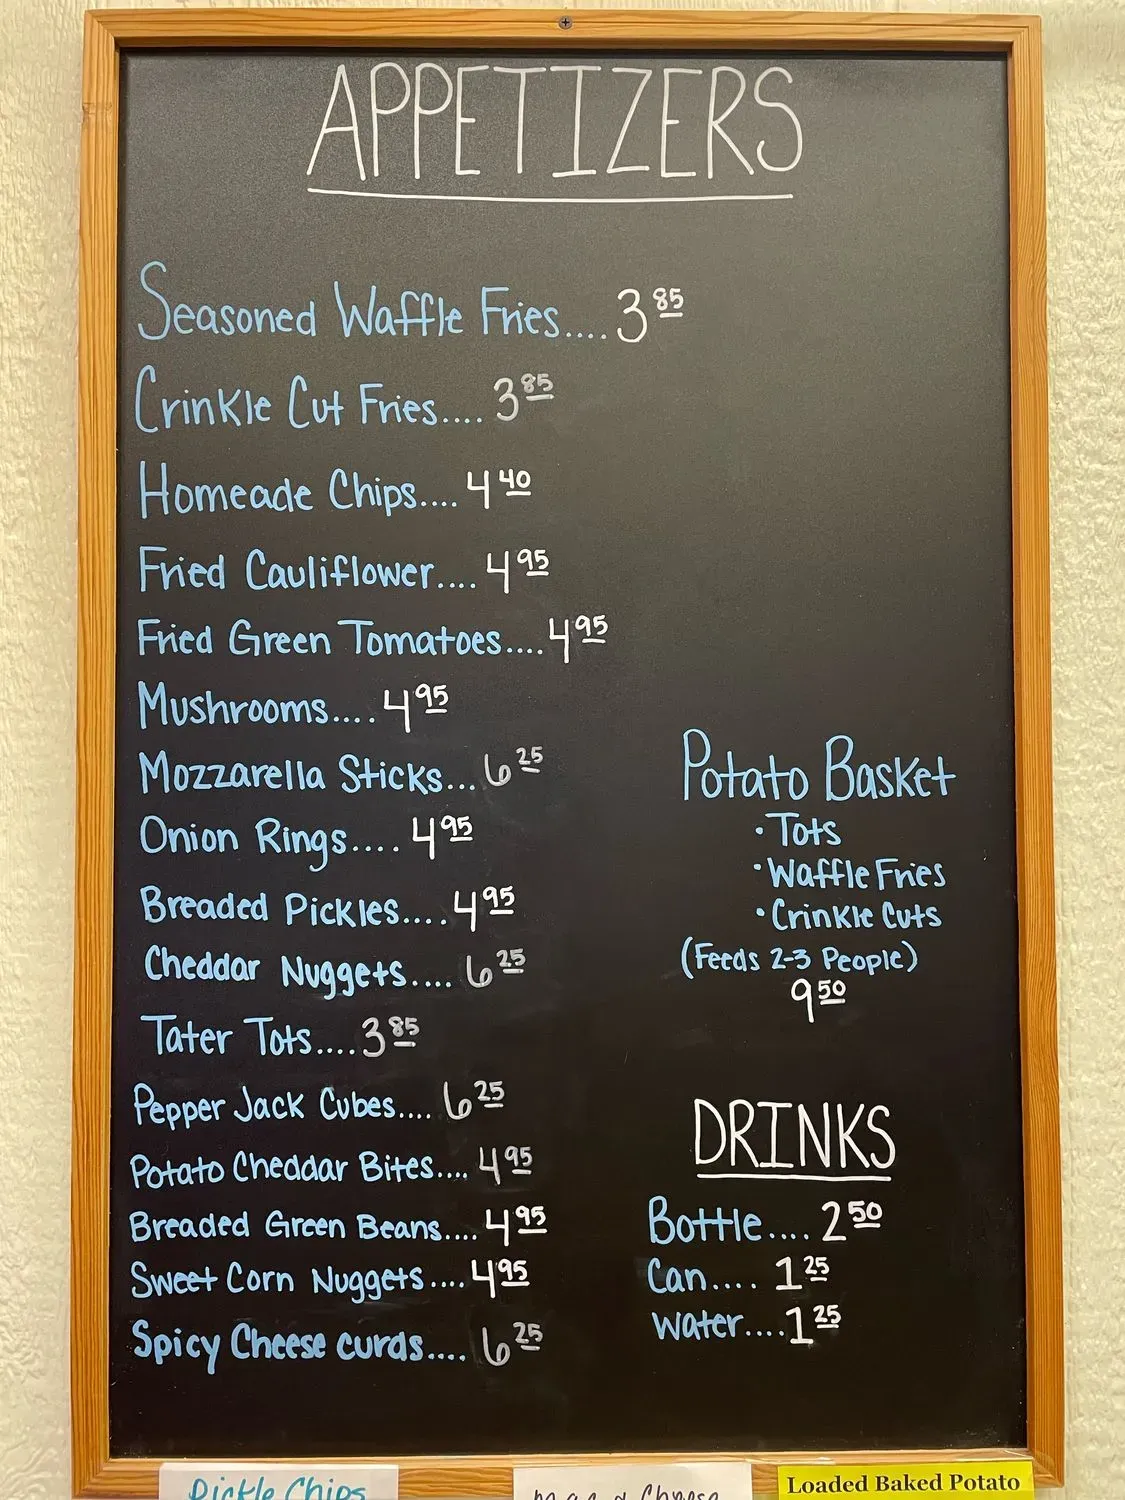 APPETIZERS
Seasoned Waffle Fries.... 3 85
Crinkle Cut Fries.... 3 85
Homeade Chips.... 4 40
Fried Cauliflower.... 4 95
Fried Green Tomatoes.... 4 95
Mushrooms.... 4 95
Mozzarella Sticks... 6 25
Onion Rings.... 4 95
Breaded Pickles.... 4 95
Cheddar Nuggets.... 6 25
Tater Tots.... 3 85
Pepper Jack Cubes.... 6 25
Potato Cheddar Bites.... 4 95
Breaded Green Beans.... 4 95
Sweet Corn Nuggets.... 4 95
Spicy Cheese curds.... 6 25
Potato Basket
• Tots
• Waffle Fries
• Crinkle Cuts
(Feeds 2-3 People)
9 50
DRINKS
Bottle.... 2 50
Can.... 1 25
Water.... 1 25
Pickle Chips
mac & Cheese
Loaded Baked Potato